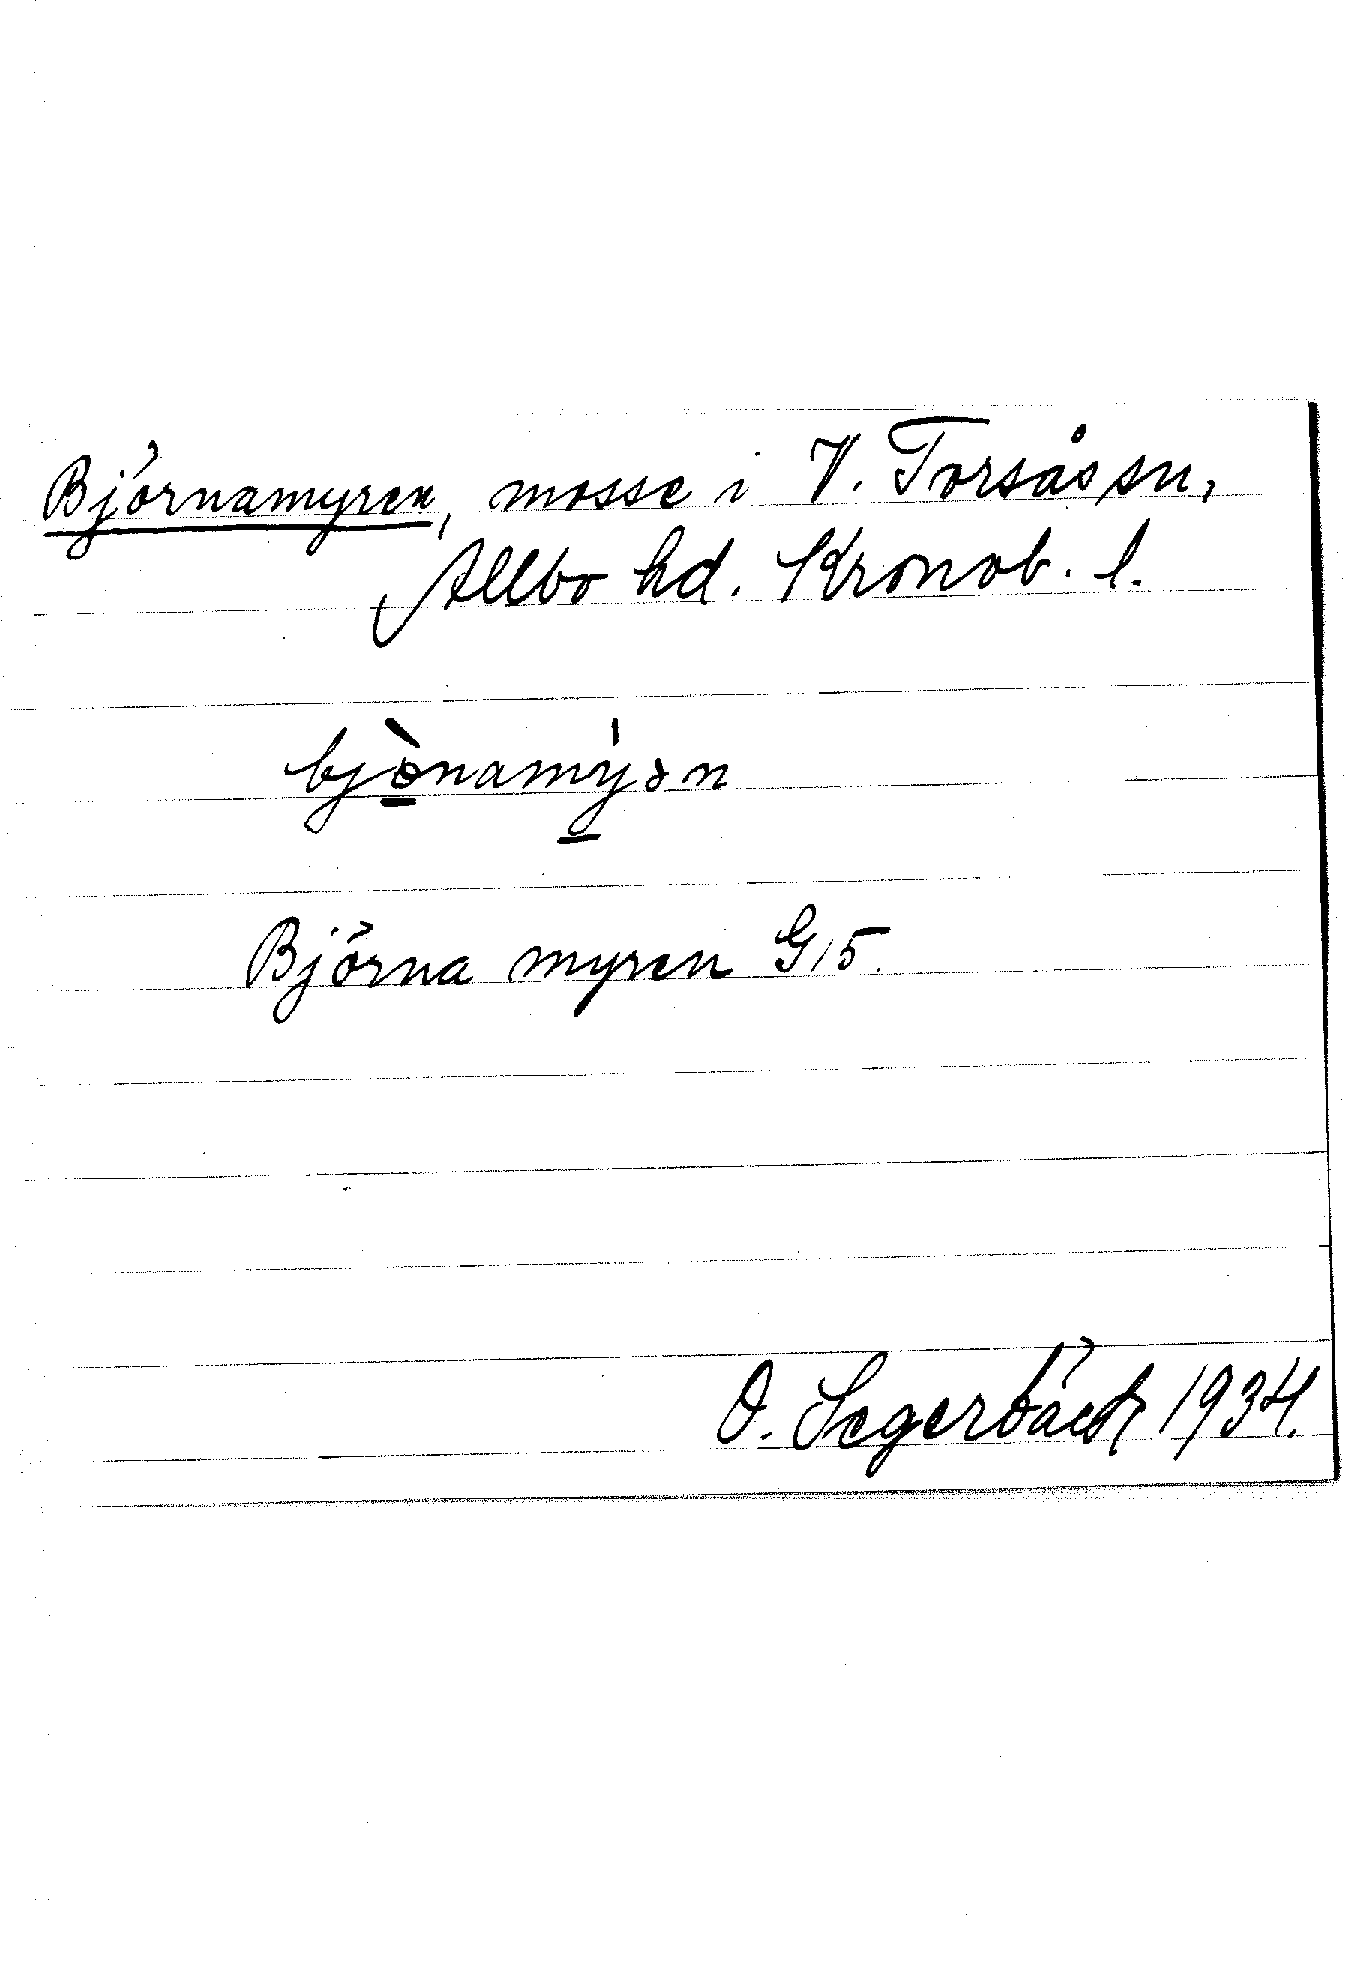 Björnamyren, mosse i V. Torsås sn,
Allbo hd. Kronob. l.
bjònamýən
Björna myren G15.
O. Segerbäck 1934.